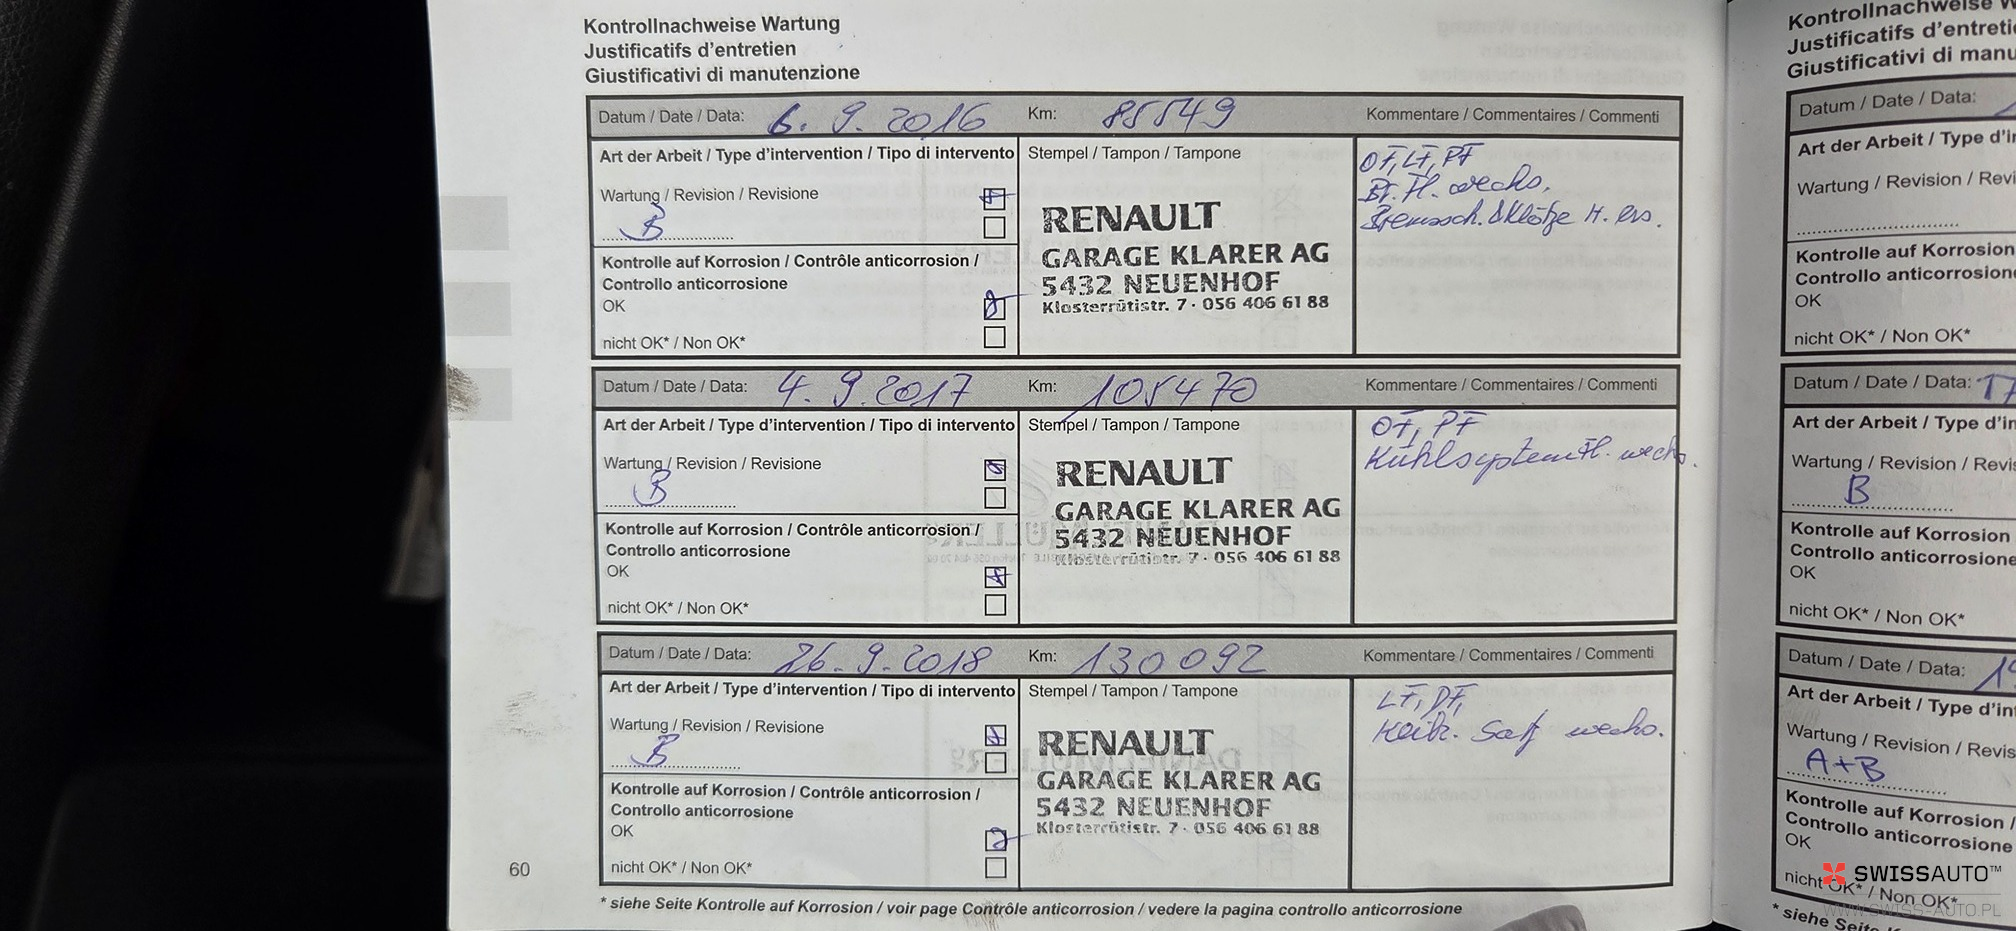 Kontrollnachweise Wartung
Justificatifs d'entretien
Giustificativi di manutenzione
Datum / Date / Data: 6. 9. 2016 Km: 85549 Kommentare / Commentaires / Commenti
Art der Arbeit / Type d'intervention / Tipo di intervento Stempel / Tampon / Tampone
OF, LF, PF
Wartung / Revision / Revisione
Br. Fl. wechs.
B
Bremssch. & Klötze H. ers.
RENAULT
GARAGE KLARER AG
5432 NEUENHOF
Klosterrütistr. 7 · 056 406 61 88
Kontrolle auf Korrosion / Contrôle anticorrosion /
Controllo anticorrosione
OK
nicht OK* / Non OK*
Datum / Date / Data: 4. 9. 2017 Km: 105470 Kommentare / Commentaires / Commenti
Art der Arbeit / Type d'intervention / Tipo di intervento Stempel / Tampon / Tampone
OF, PF
Wartung / Revision / Revisione
Kühlsystem Fl. wechs.
B
RENAULT
GARAGE KLARER AG
5432 NEUENHOF
Klosterrütistr. 7 · 056 406 61 88
Kontrolle auf Korrosion / Contrôle anticorrosion /
Controllo anticorrosione
OK
nicht OK* / Non OK*
Datum / Date / Data: 26. 9. 2018 Km: 130092 Kommentare / Commentaires / Commenti
Art der Arbeit / Type d'intervention / Tipo di intervento Stempel / Tampon / Tampone
LF,
Wartung / Revision / Revisione
wechs.
B
RENAULT
GARAGE KLARER AG
5432 NEUENHOF
Klosterrütistr. 7 · 056 406 61 88
Kontrolle auf Korrosion / Contrôle anticorrosion /
Controllo anticorrosione
OK
nicht OK* / Non OK*
60
* siehe Seite Kontrolle auf Korrosion / voir page Contrôle anticorrosion / vedere la pagina controllo anticorrosione
Kontrollnachweise W
Justificatifs d'entreti
Giustificativi di manu
Datum / Date / Data:
Art der Arbeit / Type d'in
Wartung / Revision / Revi
Kontrolle auf Korrosion
Controllo anticorrosion
OK
nicht OK* / Non OK*
Datum / Date / Data: 17
Art der Arbeit / Type d'in
Wartung / Revision / Revis
B
Kontrolle auf Korrosion
Controllo anticorrosione
OK
nicht OK* / Non OK*
Datum / Date / Data: 19
Art der Arbeit / Type d'int
Wartung / Revision / Revis
A+B
Kontrolle auf Korrosion /
Controllo anticorrosione
OK
nicht OK* / Non OK*
* siehe Seite K
SWISSAUTO™
WWW.SWISS-AUTO.PL